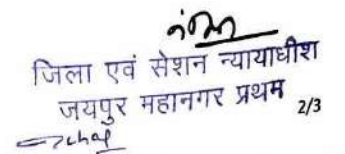 जिला एवं सेशन न्यायाधीश
जयपुर महानगर प्रथम
2/3